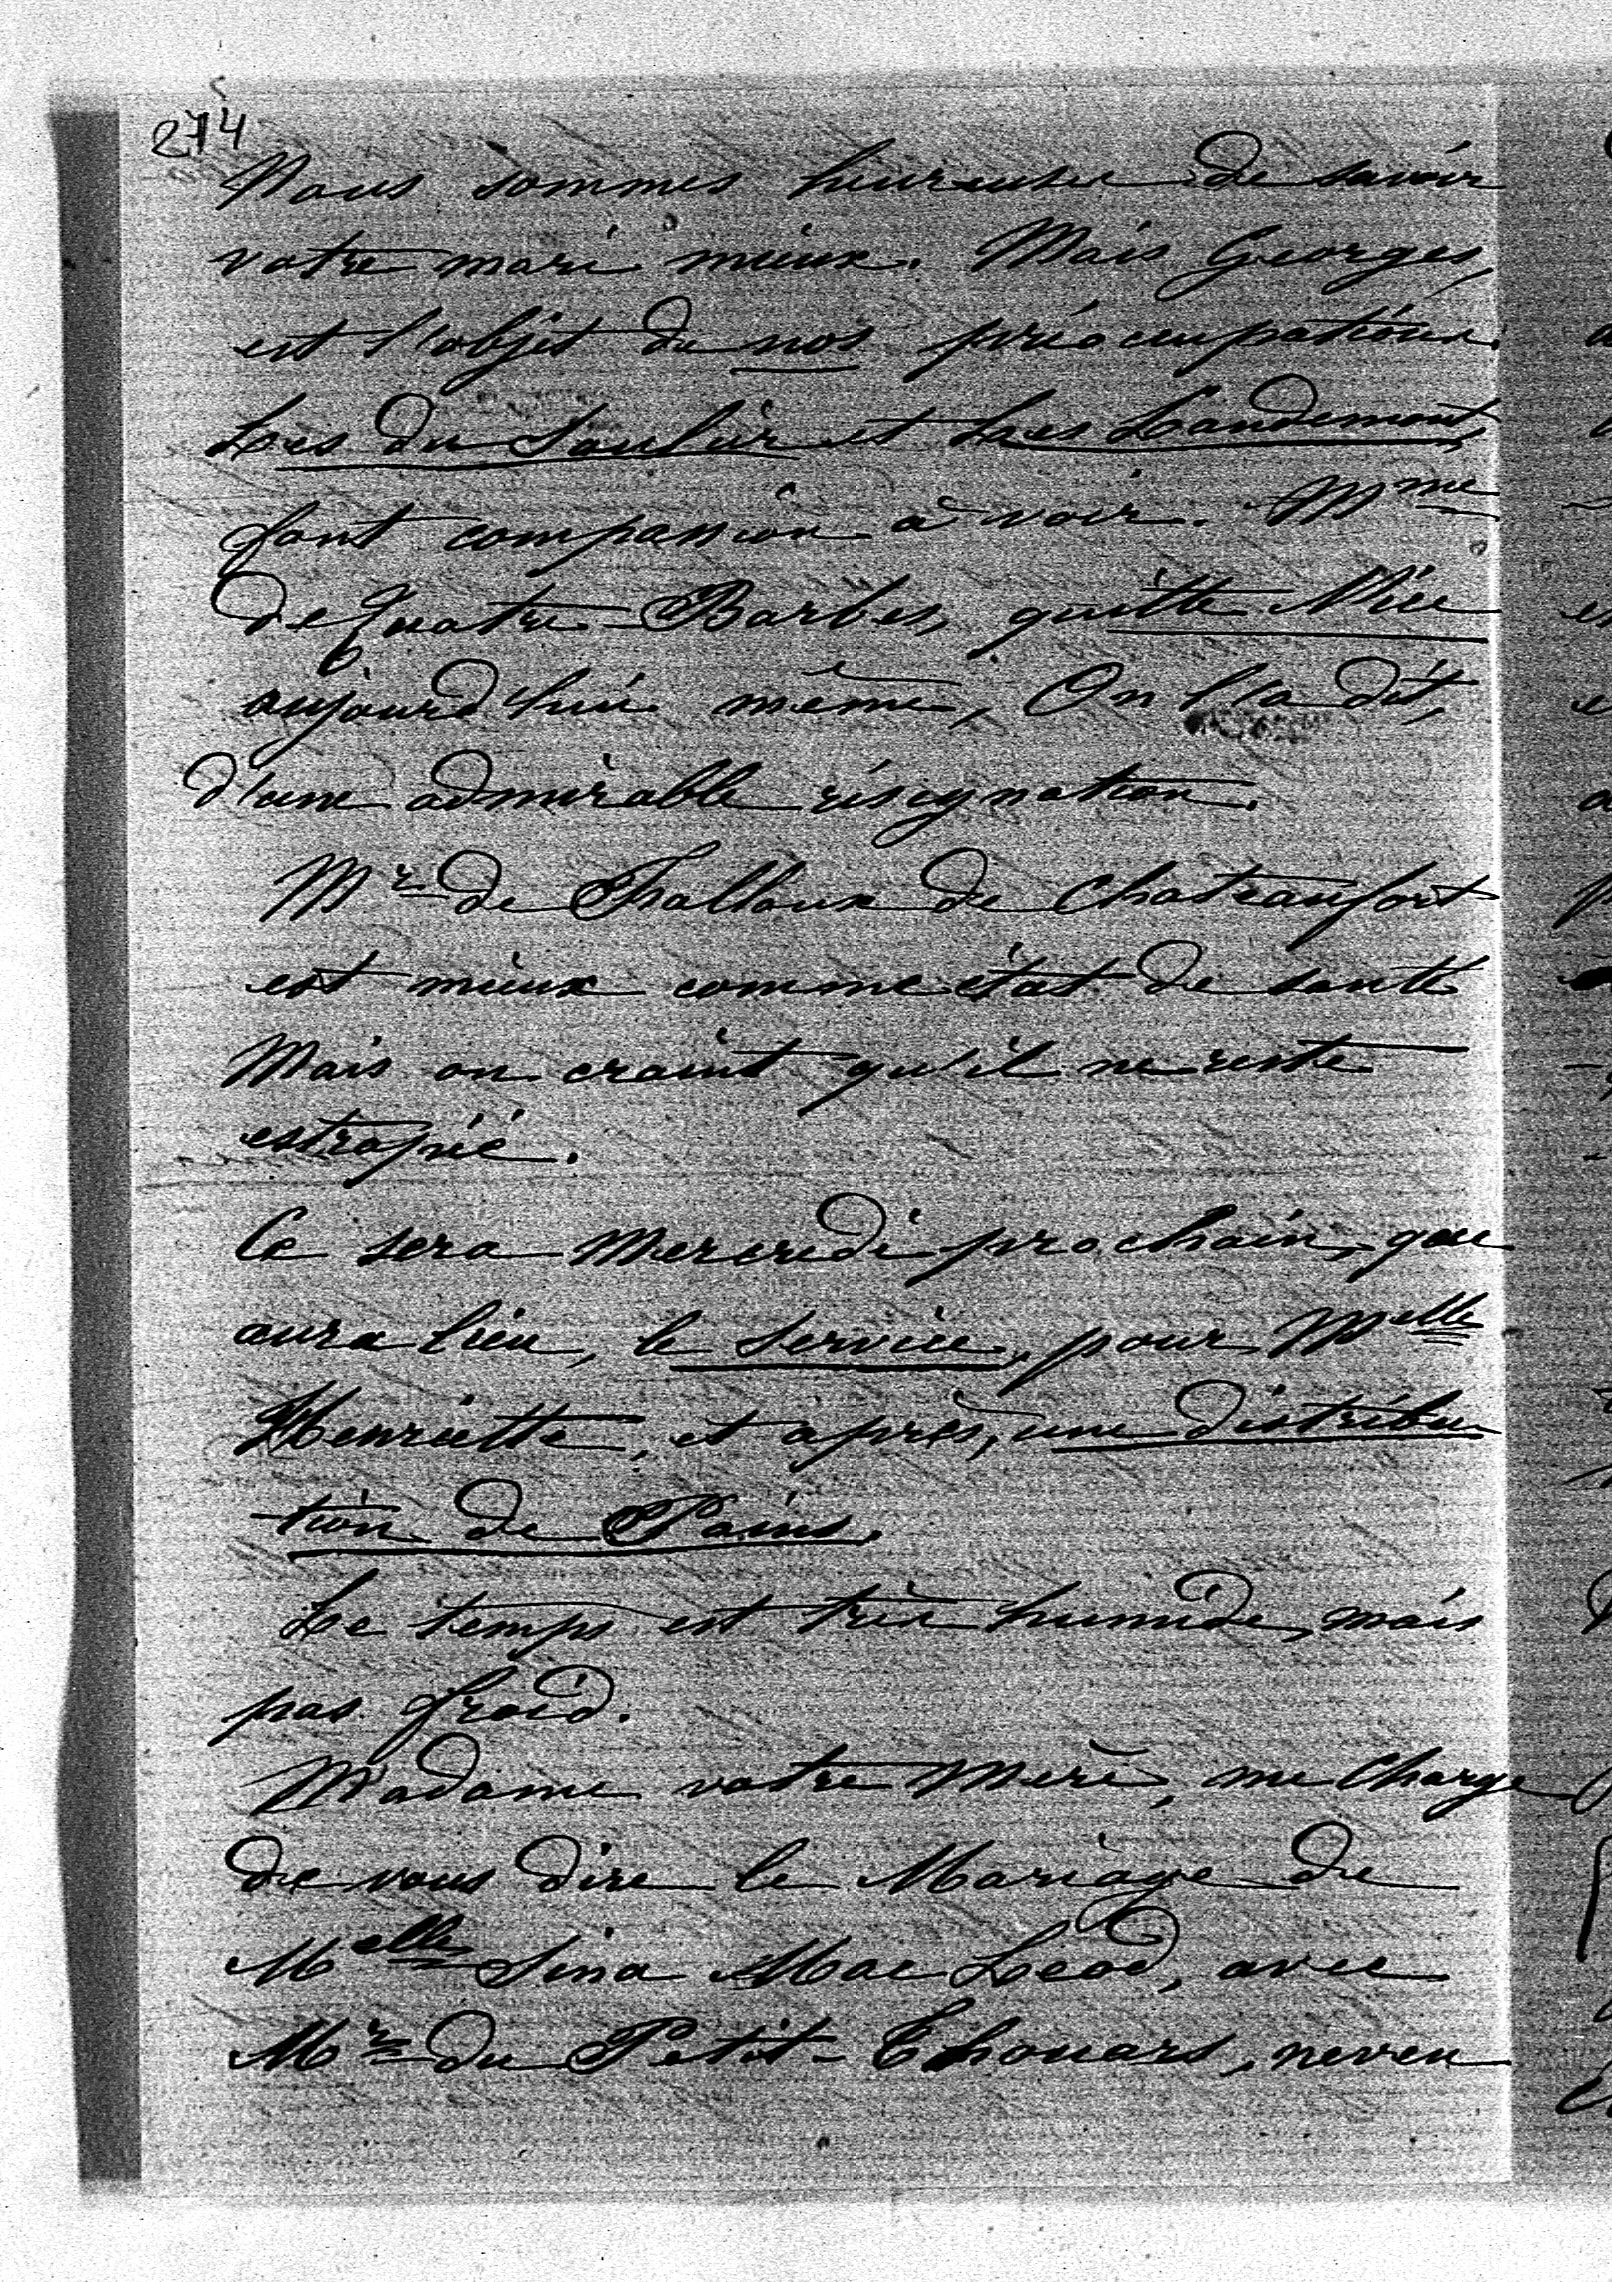 274
Nous sommes heureuses de savoir
votre mari mieux. Mais Georges,
est l'objet de nos préocupations.
Les du Soulier et Les Landemont,
font compassion à voir. Mme
de Quatre-Barbes, quitte Nice
aujourd'hui même, On l'a dit,
d'une admirable résignation.
Mr de Falloux de Chateaufort
est mieux comme état de santé
Mais on craint qu'il ne reste
estropié.
Ce sera Mercredi prochain, que
aura lieu, le Service, pour Melle
Henriette, et après, une distribu
-tion de Pains.
Le temps est très humide, mais
pas froid.
Madame votre Mère, me Charge
de vous dire le Mariage de
Melle Sina Mac Leod, avec
Mr du Petit-Thouars, neveu